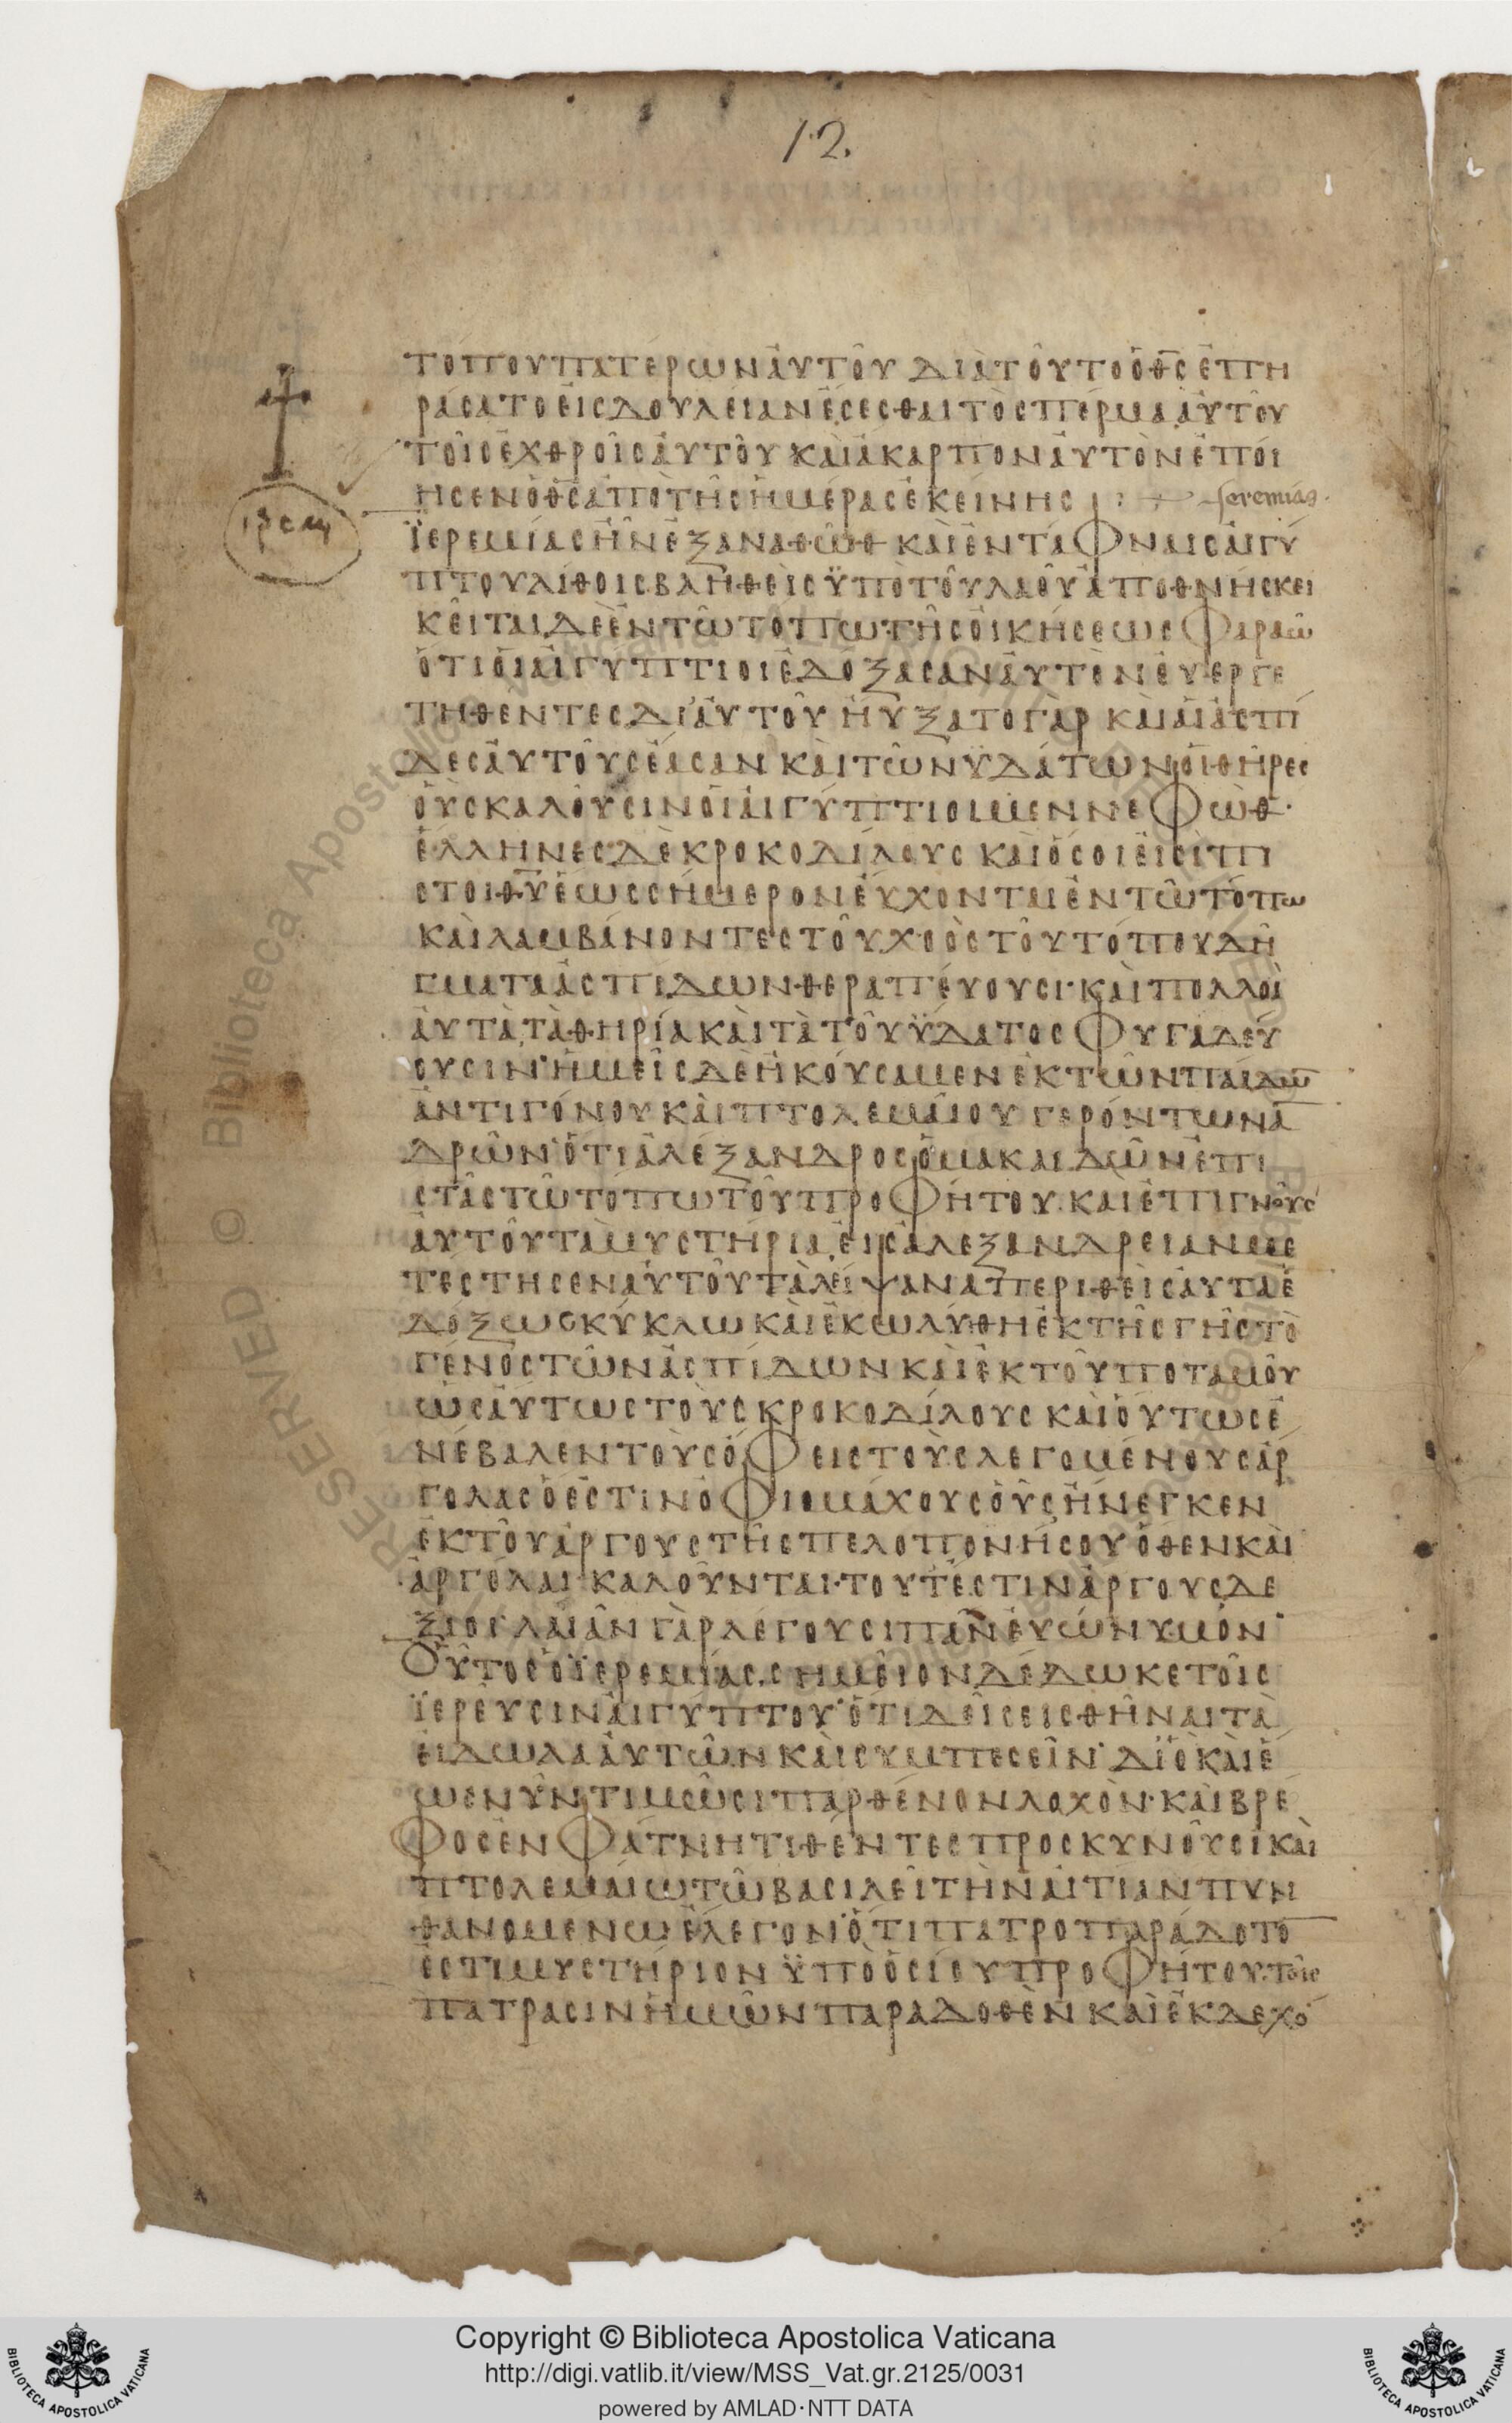 12.
τόπου πατέρων ἀυτοῦ διὰ τοῦτο ὁ θ̅ς̅ ἐπη
ράσατο εἰς δουλειαν ἔσεσθαι τὸ σπέρμα ἀυτοῦ
τοῖς ἐχθροῖς ἀυτοῦ καὶ ἄκαρπον ἀυτὸν ἐποί
ησεν ὁ θ̅ς̅ ἀπὸ τῆς ἡμέρας ἐκείνης
Jeremias.
ιρεμ
ϊερεμίας ἦν ἐξ αναθὼθ καὶ ἐν τάφναις ἀιγύ
πτου λίθοις βληθεὶς ϋπὸ τοῦ λαοῦ ἀποθνήσκει
κεῖται δὲ ἐν τῶ τόπω τῆς ὀικήσεως φαραὼ
ὅτι ὁι ἀιγύπτιοι ἐδόξασαν ἀυτὸν ἐυεργε
τηθεντες δι' ἀυτοῦ ἠύξατο γὰρ καὶ ἁι ἀσπί
δες ἀυτοῦς ἔασαν καὶ τῶν ϋδάτων ὁι θῆρες
ὁὺς καλοῦσιν ὁι ἀιγύπτιοι μεν νεφὼθ·
ἕλληνες δὲ κροκοδίλους καὶ ὅσοι ἐισὶ πι
στοι θ̅υ̅ ἕως σήμερον ἐύχονται ἐν τῶ τόπω
καὶ λαμβάνοντες τοῦ χοὸς τοῦ τόπου δή
γματα ἀσπίδων θεραπέυουσι· καὶ πολλοὶ
ἀυτὰ τὰ θηρία καὶ τὰ τοῦ ϋδατος φυγαδεύ
ουσιν· ἡμεῖς δὲ ἠκούσαμεν ἐκ τῶν παίδω̅
ἀντιγόνου καὶ πτολεμαίου γερόντων ἀ̅
δρῶν· ὅτι ἀλέξανδρος ὁ μακαιδὼν ἐπι
στὰς τῶ τόπω τοῦ προφήτου. καὶ ἐπιγνοῦς
ἀυτοῦ τὰ μυστήρια, ἐις ἀλεξανδρειαν με
τεστησεν ἀυτοῦ τὰ λείψανα περιθεὶς ἀυτα ἐ
δόξως κύκλω καὶ ἐκωλύθη ἐκ τῆς γῆς τὸ
γενὸς τῶν ἀσπίδων καὶ ἐκ τοῦ ποταμοῦ
ὡσάυτως τοὺς κροκοδίλους καὶ ὁύτως ἐ
νέβαλεν τοὺς ὄφεις τοὺς λεγομένους ἀρ
γολας ὅ ἐστιν ὀφιομάχους ὁὺς ἤνεγκεν
ἐκ τοῦ ἄργους τῆς πελοπονήσου ὅθεν καὶ
ἀργόλαι καλοῦνται· τουτέστιν ἄργους δε
ξιοι λαιὰν γὰρ λέγουσι πᾶν ἐυώνυμον·
Οὗτος ὁ ϊερεμίας, σημεῖον δέδωκε τοῖς
ϊερεῦσιν ἀιγύπτου· ὅτι δεῖ σεισθῆναι τὰ
ἐιδωλα ἀυτῶν καὶ συμπεσεῖν· διὸ καὶ ἕ
ως νῦν τιμῶσι παρθένον λοχὸν· καὶ βρέ
φος ἐν φάτνη τιθέντες προσκυνοῦσι καὶ
πτολεμαίω τῶ βασιλεῖ τὴν ἀιτίαν πυν
θανομενω ἔλεγον· ὅτι πατροπαράδοτο̅
ἐστι μυστήριον ϋπὸ ὁσίου προφήτου· τοῖς
πατρασιν ἡμῶν παραδοθὲν καὶ ἐκδεχό
Copyright © Biblioteca Apostolica Vaticana
http://digi.vatlib.it/view/MSS_Vat.gr.2125/0031
powered by AMLAD·NTT DATA
BIBLIOTECA APOSTOLICA VATICANA
BIBLIOTECA APOSTOLICA VATICANA